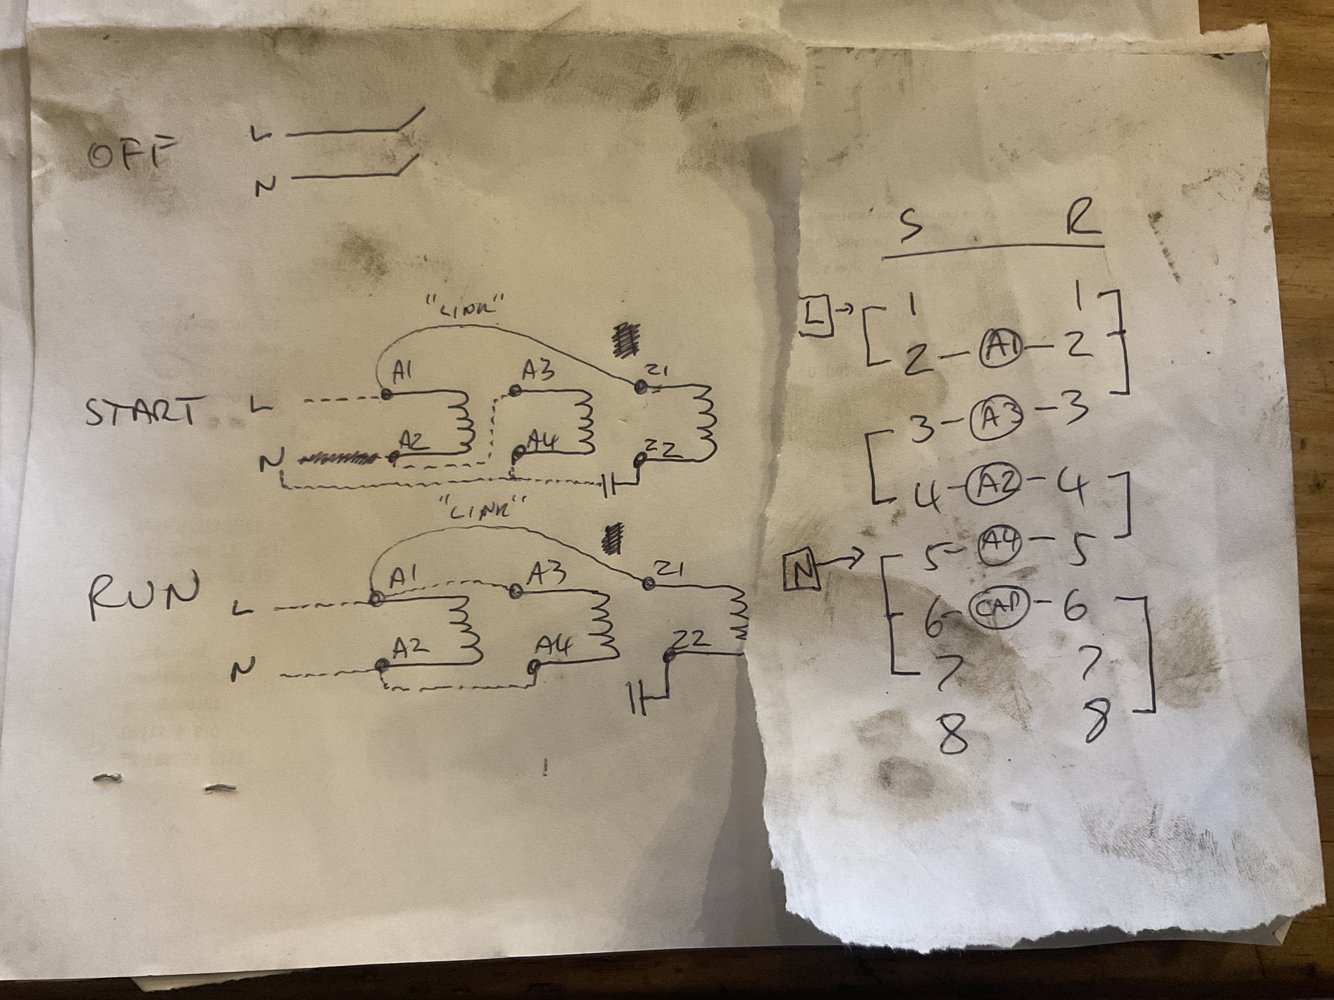 OFF L
N
"LINK"
A1 A3 Z1
START L
N A2 A4 Z2
"LINK"
A1 A3 Z1
RUN L
N A2 A4 Z2
S R
L → 1 1
2 - A1 - 2
3 - A3 - 3
4 - A2 - 4
N → 5 - A4 - 5
6 - CAP - 6
7 7
8 8